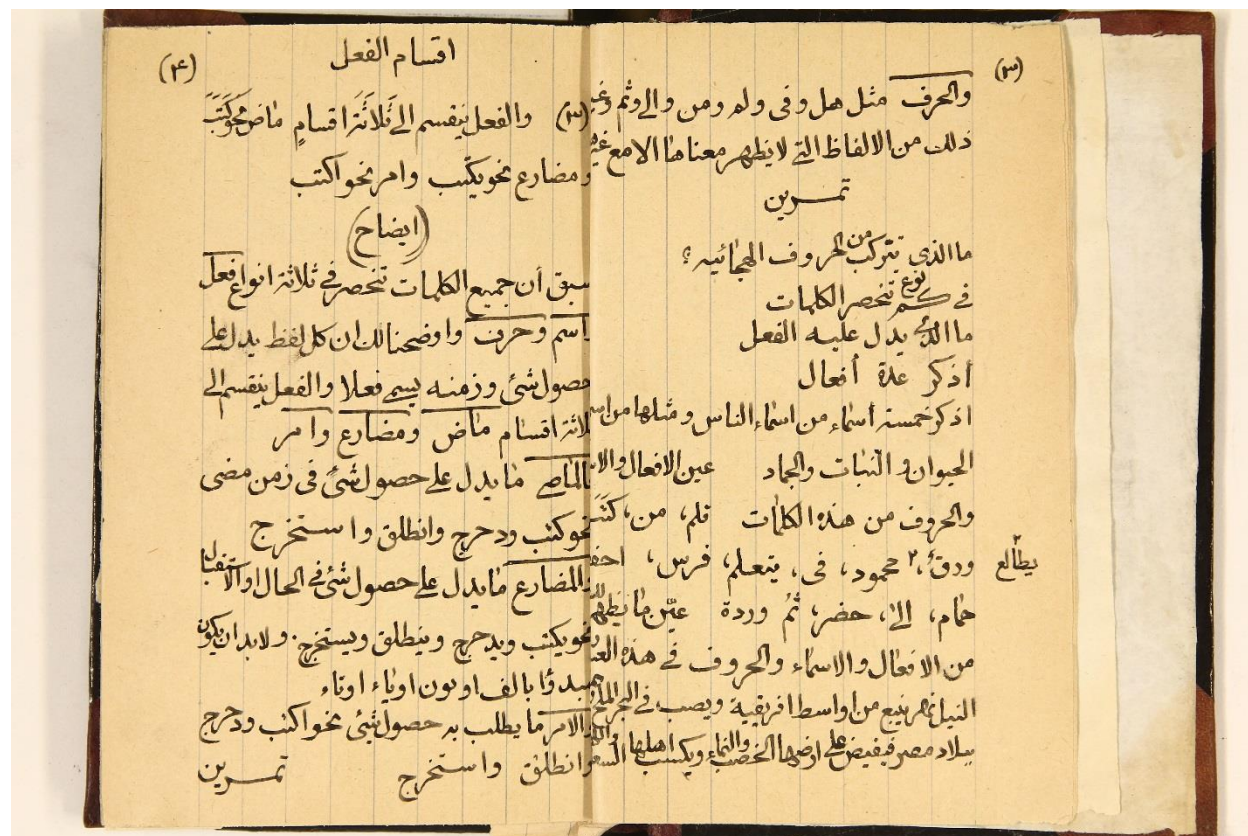 (٣)
والحرف مثل هل وفى ولم ومن والى وثم وغير
ذلك من الالفاظ التى لا يظهر معناها الا مع غيره
تمرين
ما الذى يتركب من الحروف الهجائيه ؟
فى كم نوع تنحصر الكلمات
ما الذى يدل عليه الفعل
أذكر عدة أفعال
اذكر خمسة أسماء من اسماء الناس ومثلها من اسماء
الحيوان والنبات والجماد عين الافعال والاسماء
والحروف من هذه الكلمات قلم، من، كتَبَ
يطالع ورقة، محمود، فى، يتعلم، فرس، احفظ
حمام، الى، حضر، ثم وردة عيّن ما يظهر لك
من الافعال والاسماء والحروف فى هذه العبارة
النيل نهر ينبع من اواسط افريقية ويصب فى البحر المالح
ببلاد مصر فيفيض على ارضها الخصب والنماء ويكسب اهلها
(٤)
اقسام الفعل
(٣) والفعل ينقسم الى ثَلَاثَةَ اقسامٍ ماض نحو كَتَبَ
ومضارع نحو يكتب وامر نحو اكتب
(ايضاح)
سبق أن جميع الكلمات تنحصر فى ثلاثة انواع فعل
واسم وحرف واوضحنا لك ان كل لفظ يدل على
حصول شئ وزمنه يسمى فعلا والفعل ينقسم الى
ثلاثة اقسام ماض ومضارع وامر
فالماضى ما يدل على حصول شئ فى زمن مضى
نحو كتب ودحرج وانطلق واستخرج
والمضارع ما يدل على حصول شئ فى الحال او الاستقبال
نحو يكتب ويدحرج وينطلق ويستخرج. ولا بد ان يكون
مبدؤا بالف او نون او ياء او تاء
والامر ما يطلب به حصول شئ نحو اكتب ودحرج
وانطلق واستخرج تمرين